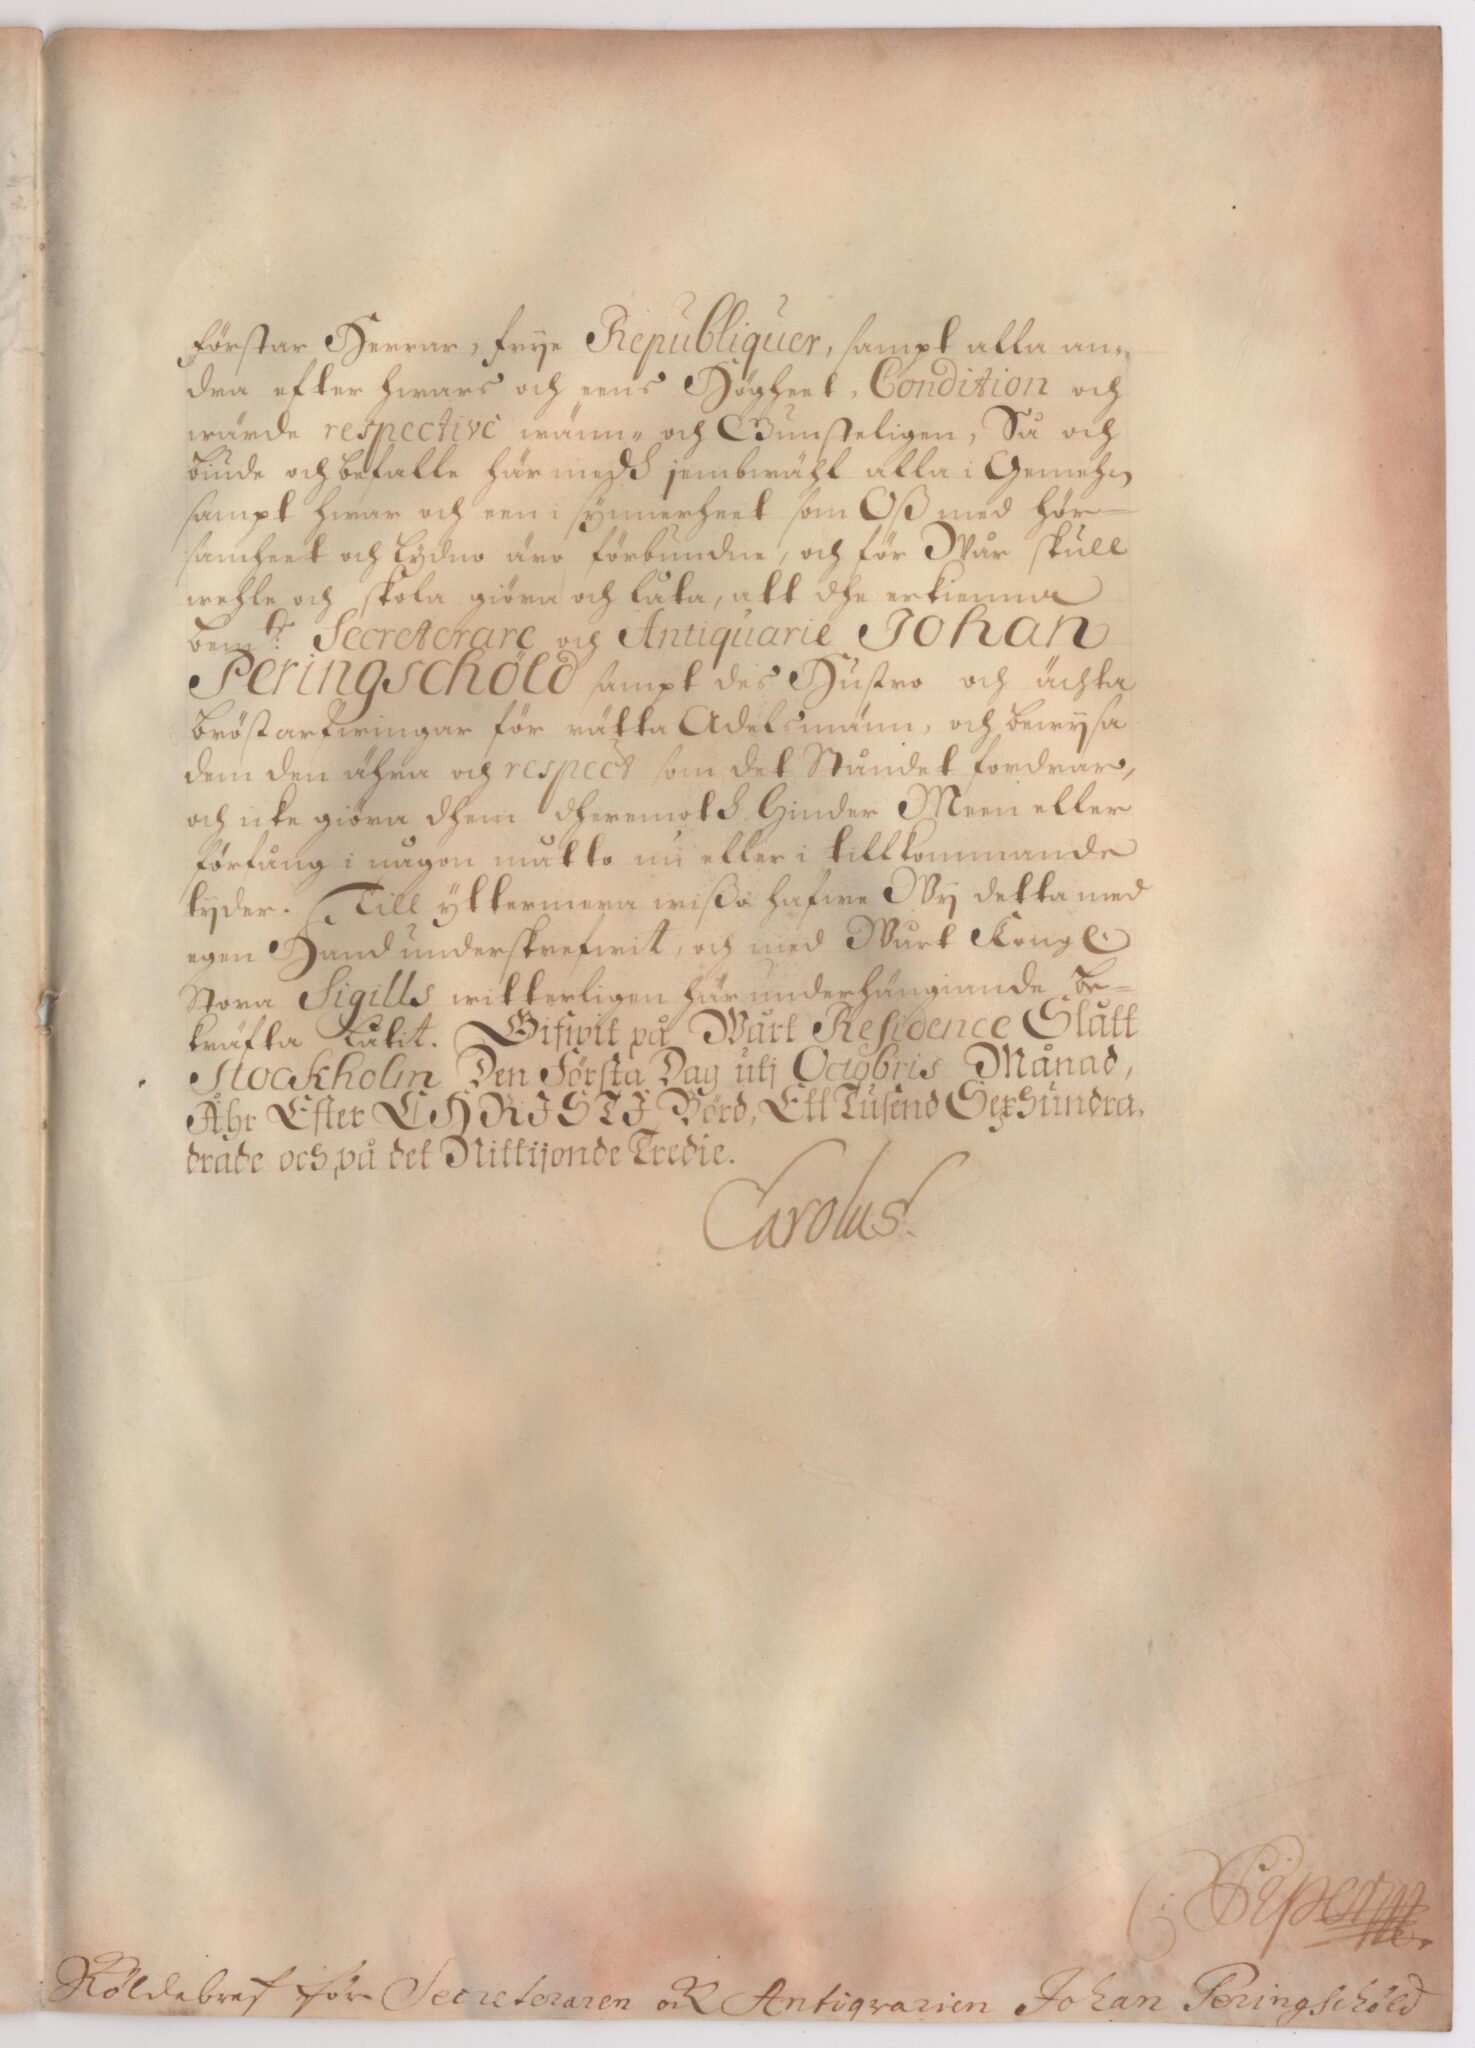 Förstar Herrar, frye Republiquer, sampt alla an-
dra efter hwars och eens Högheet, Condition och
wärde respective wänn- och Gunsteligen, Så och
biude och befalle här medh jembwähl alla i Gemehn
sampt hwar och een i synnerheet som Oß med hör-
samheet och lydno äro förbundne, och för Wår skull
wehle och skola giöra och låta, att dhe erkienna
bemt: Secreterare och Antiquarie Johan
Peringschöld sampt des Hustro och ächta
bröstarfwingar för rätta Adelsmänn, och bewysa
dem den ähra och respect som det Ståndet fordrar,
och icke giöra dhem dheremoth Hinder Meen eller
förfång i någon måtto nu eller i tillkommande
tyder. Till yttermera wißo hafwe Wy detta med
egen Hand underskrefwit, och med Wart Kongl.
Stora Sigills witterligen här underhängiande be-
kräfta Låtit. Gifwit på Wårt Residence Slått
Stockholm Den Första Dag utj Octobris Månad,
Åhr Efter CHRISTI Börd, Ett Tusend Sexhundra,
drade och på det Nittijonde Tredie.
Carolus.
C: Piper
Köldebref för Secreteraren och Antiqvarien Johan Peringschöld